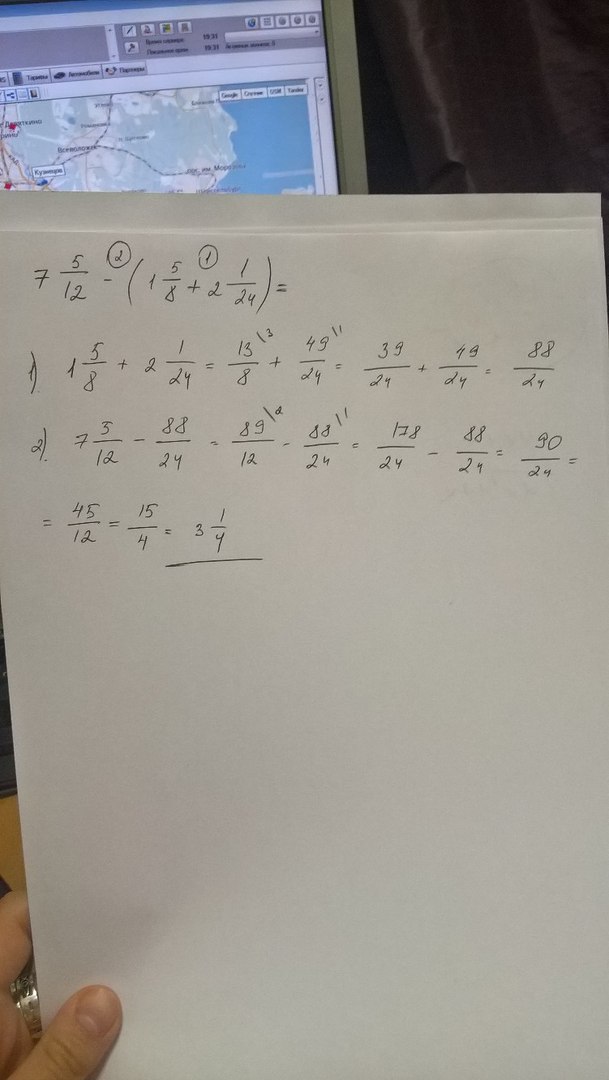 Время сервера: 19:31
Локальное время 19:31 Активных звонков: 5
Тарифы Автомобили Партнеры
Google Спутник OSM Yandex
Девяткино
Всеволожск
Кузнецов
пос. им. Морозова
7 5/12 - (1 5/8 + 2 1/24) =
② ①
1). 1 5/8 + 2 1/24 = 13/8 \3 + 49/24 \1 = 39/24 + 49/24 = 88/24
2). 7 5/12 - 88/24 = 89/12 \2 - 88/24 \1 = 178/24 - 88/24 = 90/24 =
= 45/12 = 15/4 = 3 1/4